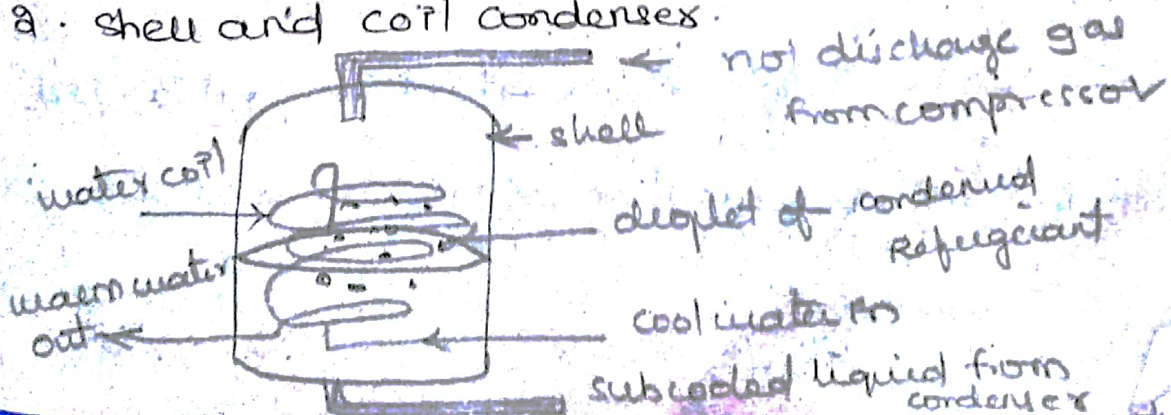 2. shell and coil condenser.
hot discharge gas
from compressor
shell
water coil
droplet of condensed
Refrigerant
warm water
out
cool water in
subcooled liquid from
condenser